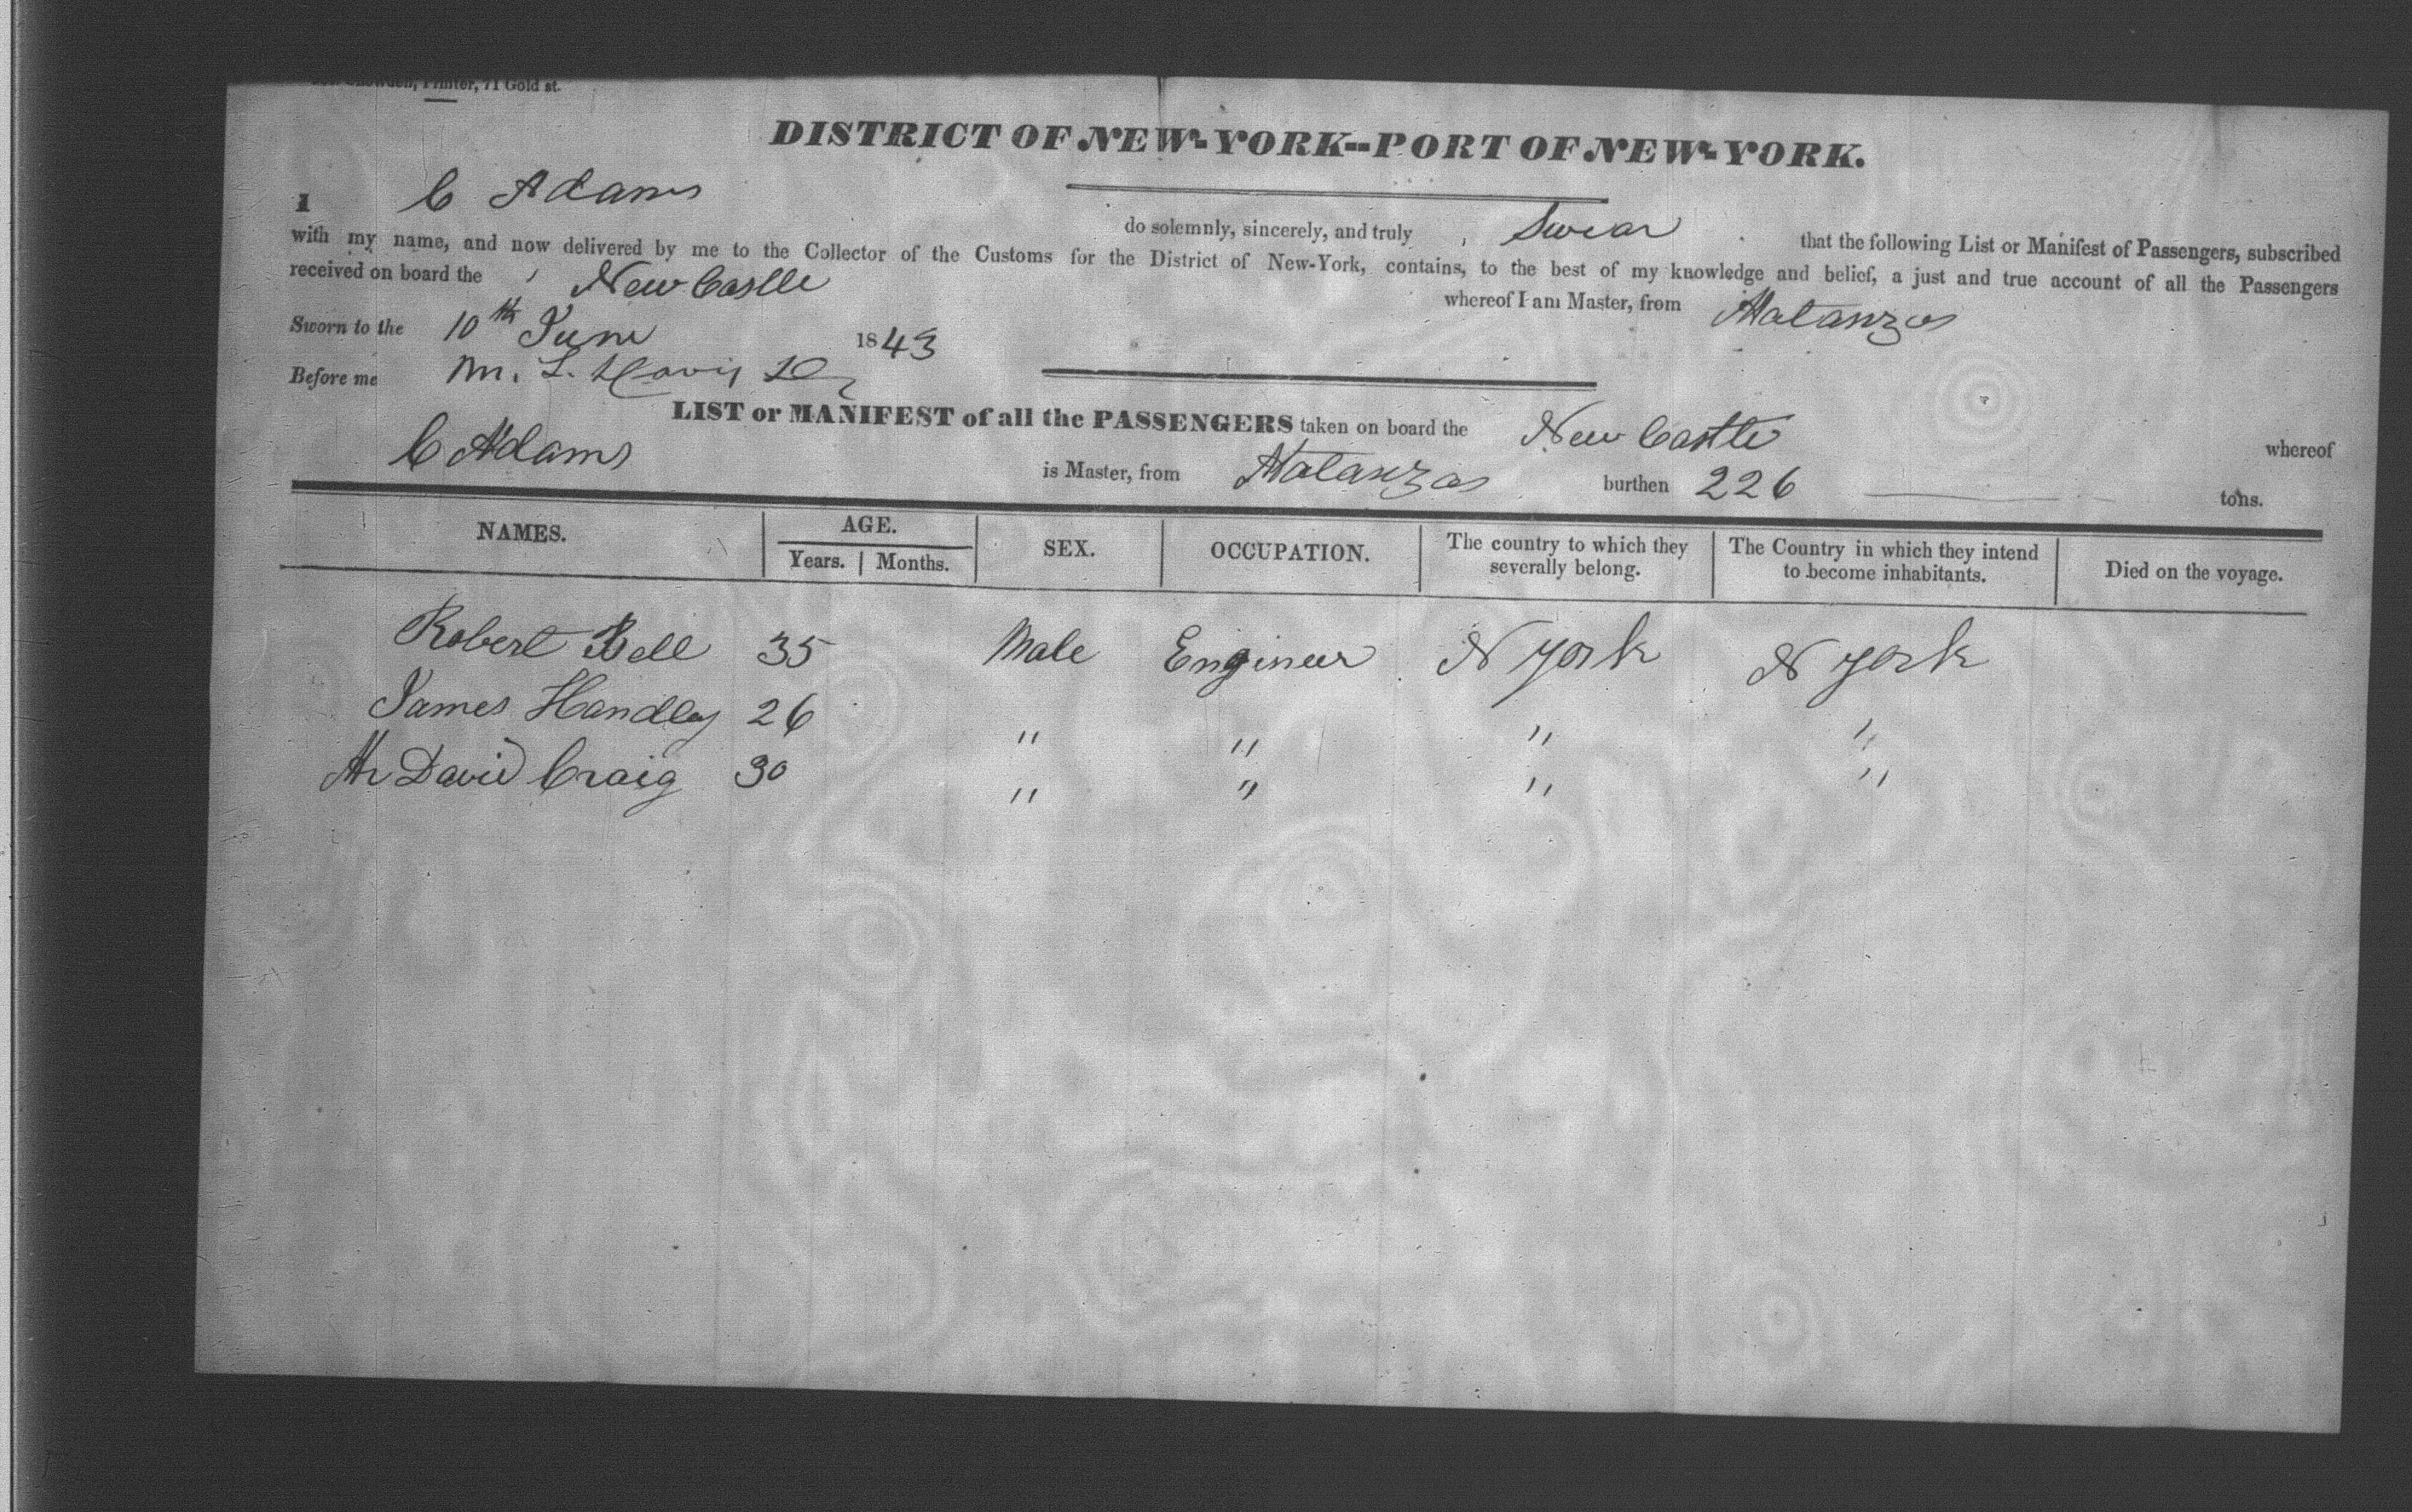 Printer, 71 Gold st.
DISTRICT OF NEW-YORK--PORT OF NEW-YORK.
I C Adams do solemnly, sincerely, and truly Swear that the following List or Manifest of Passengers, subscribed
with my name, and now delivered by me to the Collector of the Customs for the District of New-York, contains, to the best of my knowledge and belief, a just and true account of all the Passengers
received on board the New Castle whereof I am Master, from Matanzas
Sworn to the 10th June 1843
Before me M. L. Davis
LIST or MANIFEST of all the PASSENGERS taken on board the New Castle whereof
C Adams is Master, from Matanzas burthen 226 tons.
NAMES. AGE. SEX. OCCUPATION. The country to which they severally belong. The Country in which they intend to become inhabitants. Died on the voyage.
Years. Months.
Robert Bell 35 Male Engineer N york N york
James Handley 26 " " " "
Mr David Craig 30 " " " "